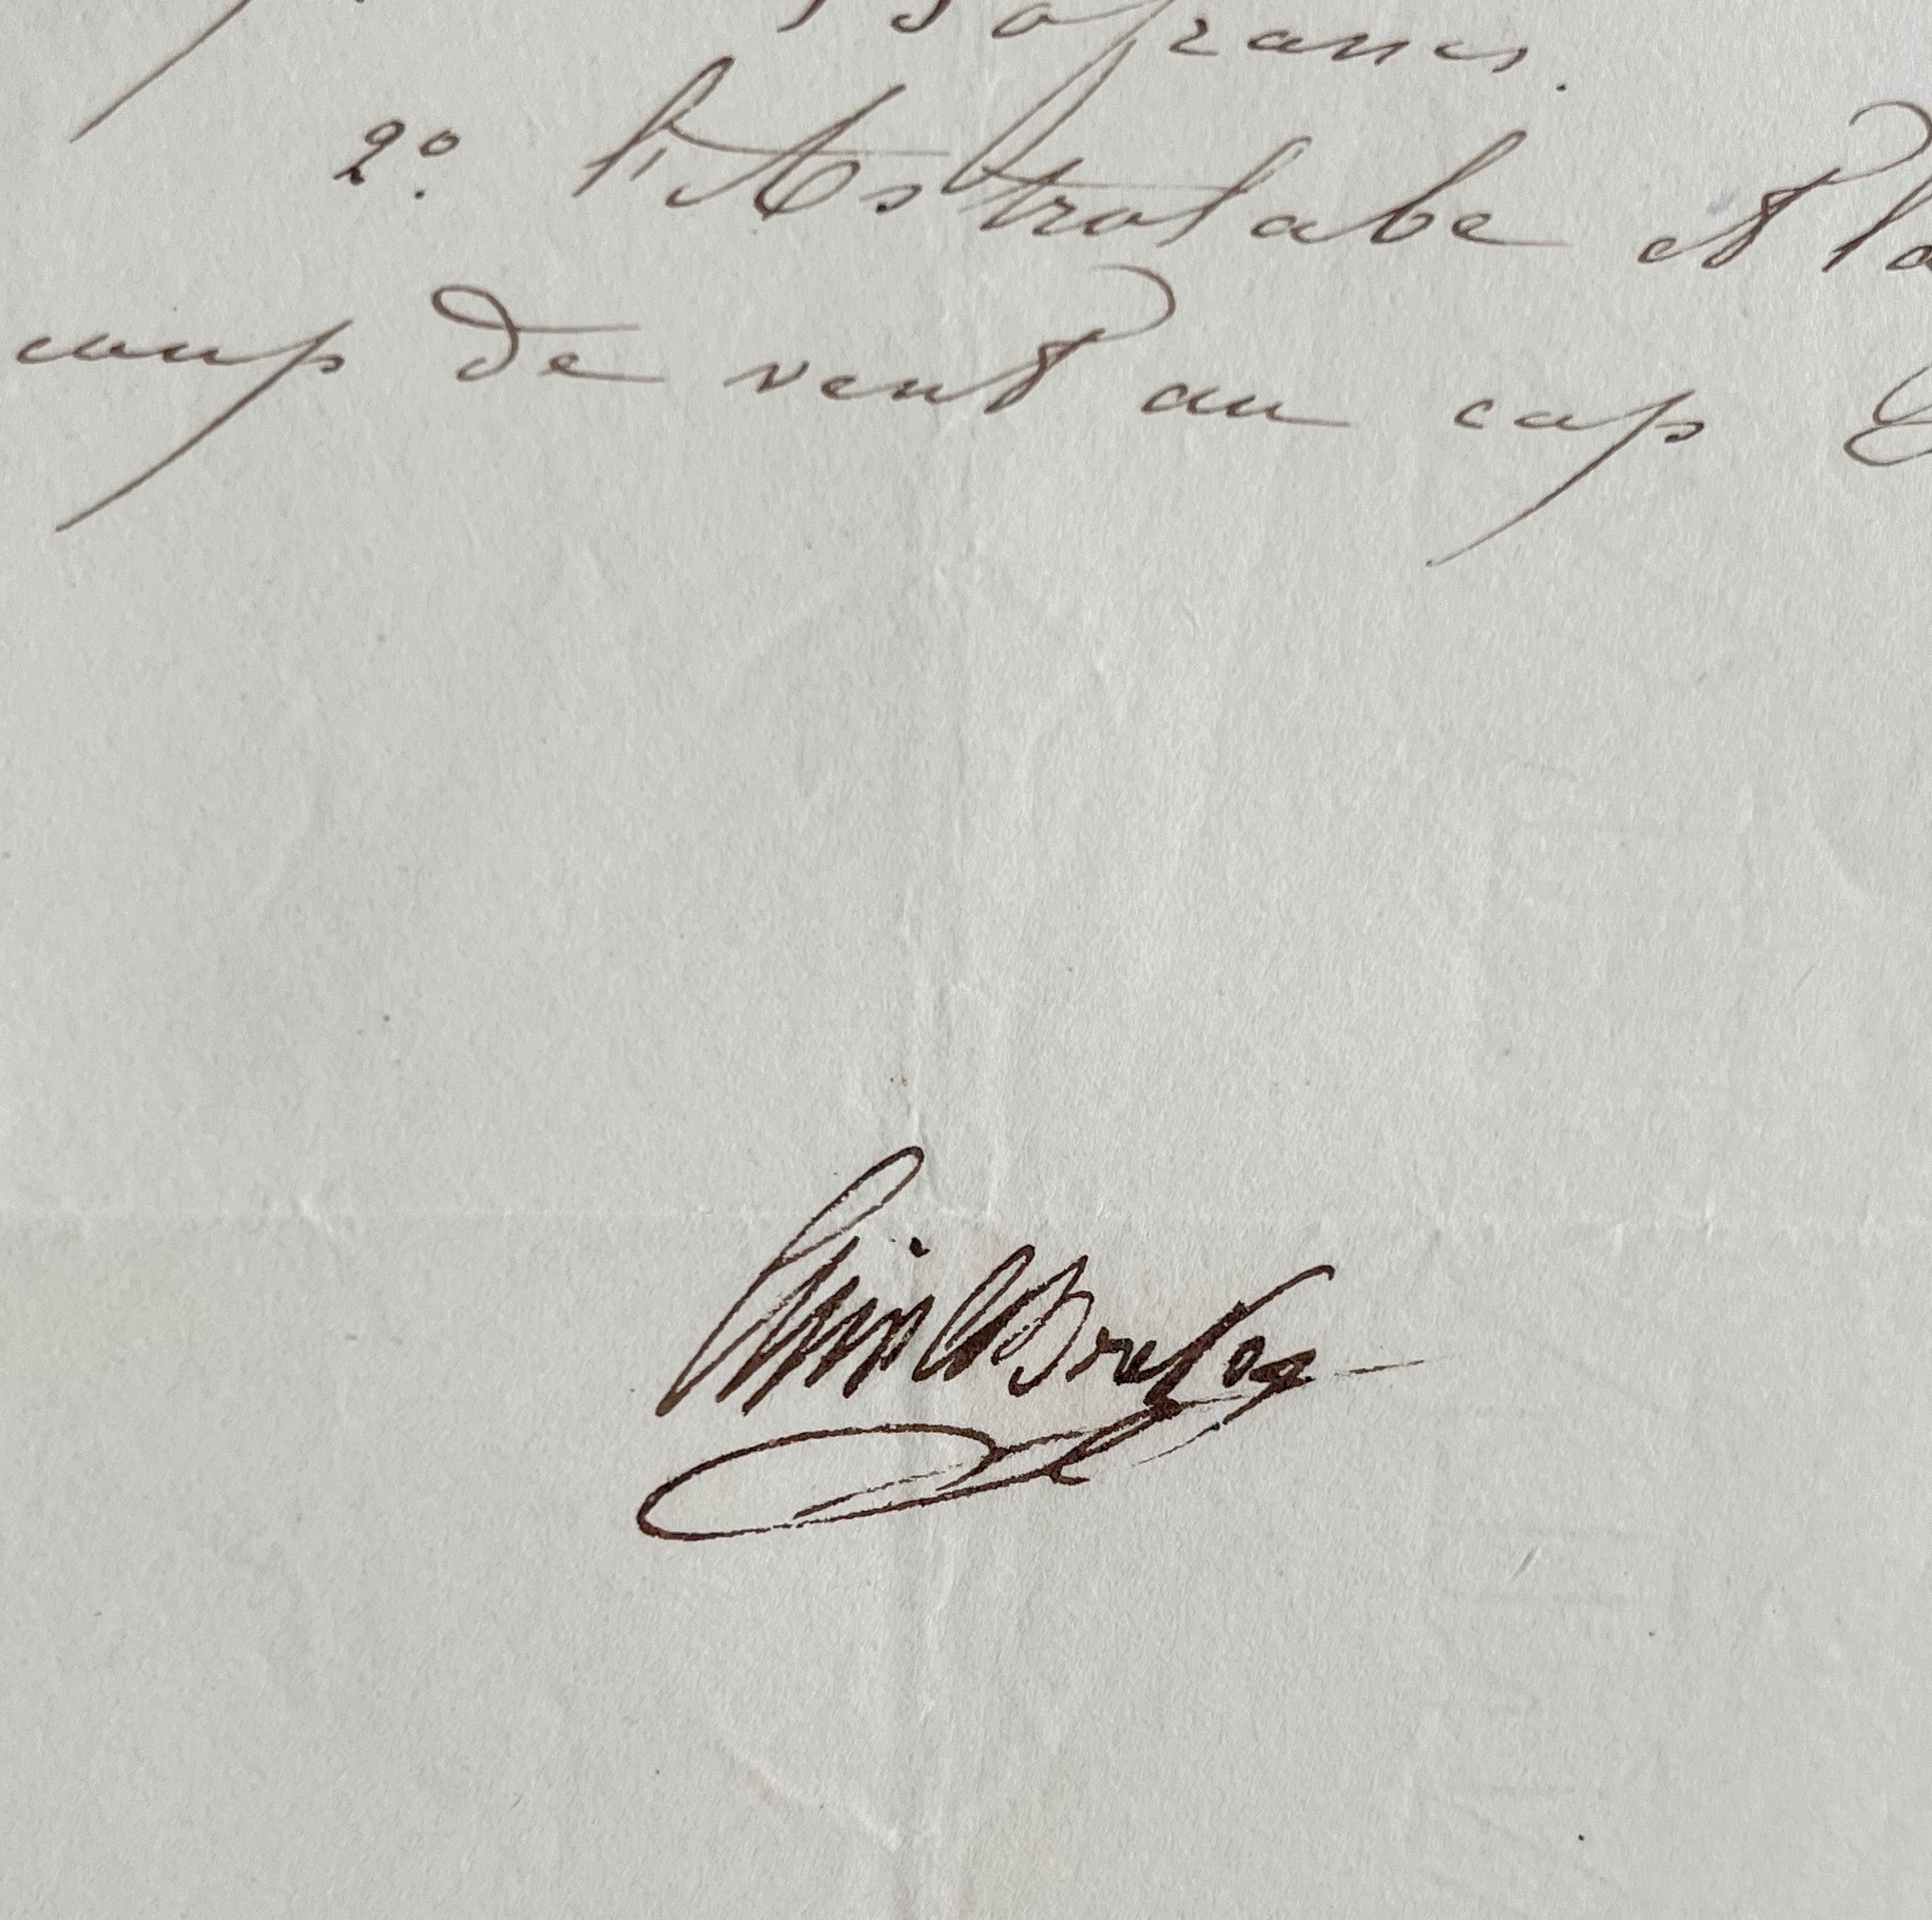 francs.
2° l'Astrolabe et la
coup de vent au cap